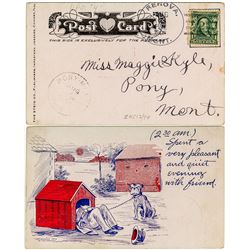 Post Card
THIS SIDE IS EXCLUSIVELY FOR THE ADDRESS.
RENOVA,
MONT.
Miss Maggie Kyle,
Pony,
Mont.
PONY
(2 30 am)
Spent a
very pleasant
and quiet
evening
with friend.